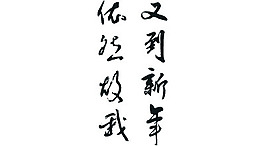 又到新年
依然故我